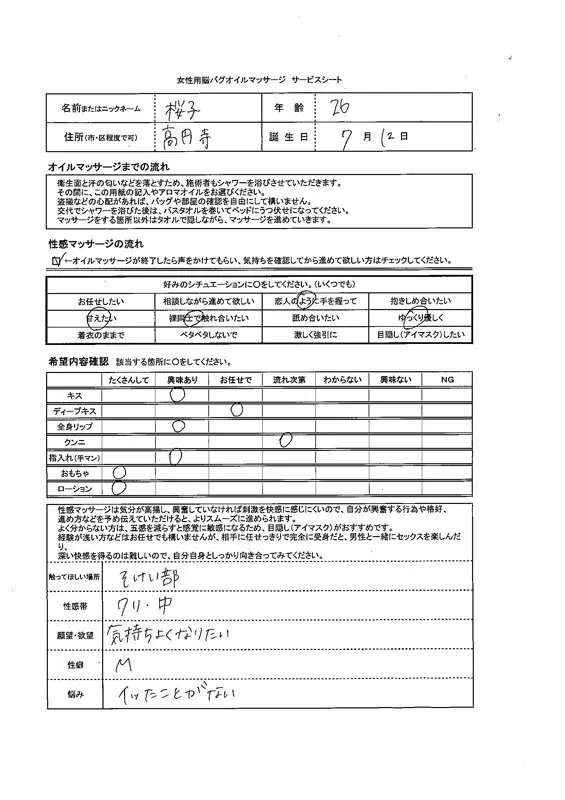 女性用脳バグオイルマッサージ サービスシート
名前またはニックネーム 桜子 年齢 26
住所(市・区程度で可) 高円寺 誕生日 7月12日
オイルマッサージまでの流れ
衛生面と汗の匂いなどを落とすため、施術者もシャワーを浴びさせていただきます。
その間に、この用紙の記入やアロマオイルをお選びください。
盗撮などの心配があれば、バッグや部屋の確認を自由にして構いません。
交代でシャワーを浴びた後は、バスタオルを巻いてベッドにうつ伏せになってください。
マッサージをする箇所以外はタオルで隠しながら、マッサージを進めていきます。
性感マッサージの流れ
←オイルマッサージが終了したら声をかけてもらい、気持ちを確認してから進めて欲しい方はチェックしてください。
好みのシチュエーションに○をしてください。(いくつでも)
お任せしたい 相談しながら進めて欲しい 恋人のように手を握って 抱きしめ合いたい
甘えたい 裸同士で触れ合いたい 舐め合いたい ゆっくり優しく
着衣のままで ベタベタしないで 激しく強引に 目隠し(アイマスク)したい
希望内容確認 該当する箇所に○をしてください。
たくさんして 興味あり お任せで 流れ次第 わからない 興味ない NG
キス
ディープキス
全身リップ
クンニ
指入れ(手マン)
おもちゃ
ローション
性感マッサージは気分が高揚し、興奮していなければ刺激を快感に感じにくいので、自分が興奮する行為や格好、
進め方などを予め伝えていただけると、よりスムーズに進められます。
よく分からない方は、五感を減らすと感覚に敏感になるため、目隠し(アイマスク)がおすすめです。
経験が浅い方などはお任せでも構いませんが、相手に任せっきりで完全に受身だと、男性と一緒にセックスを楽しんだ
り、
深い快感を得るのは難しいので、自分自身としっかり向き合ってみてください。
触ってほしい場所 そけい部
性感帯 クリ・中
願望・欲望 気持ちよくなりたい
性癖 M
悩み イッたことがない